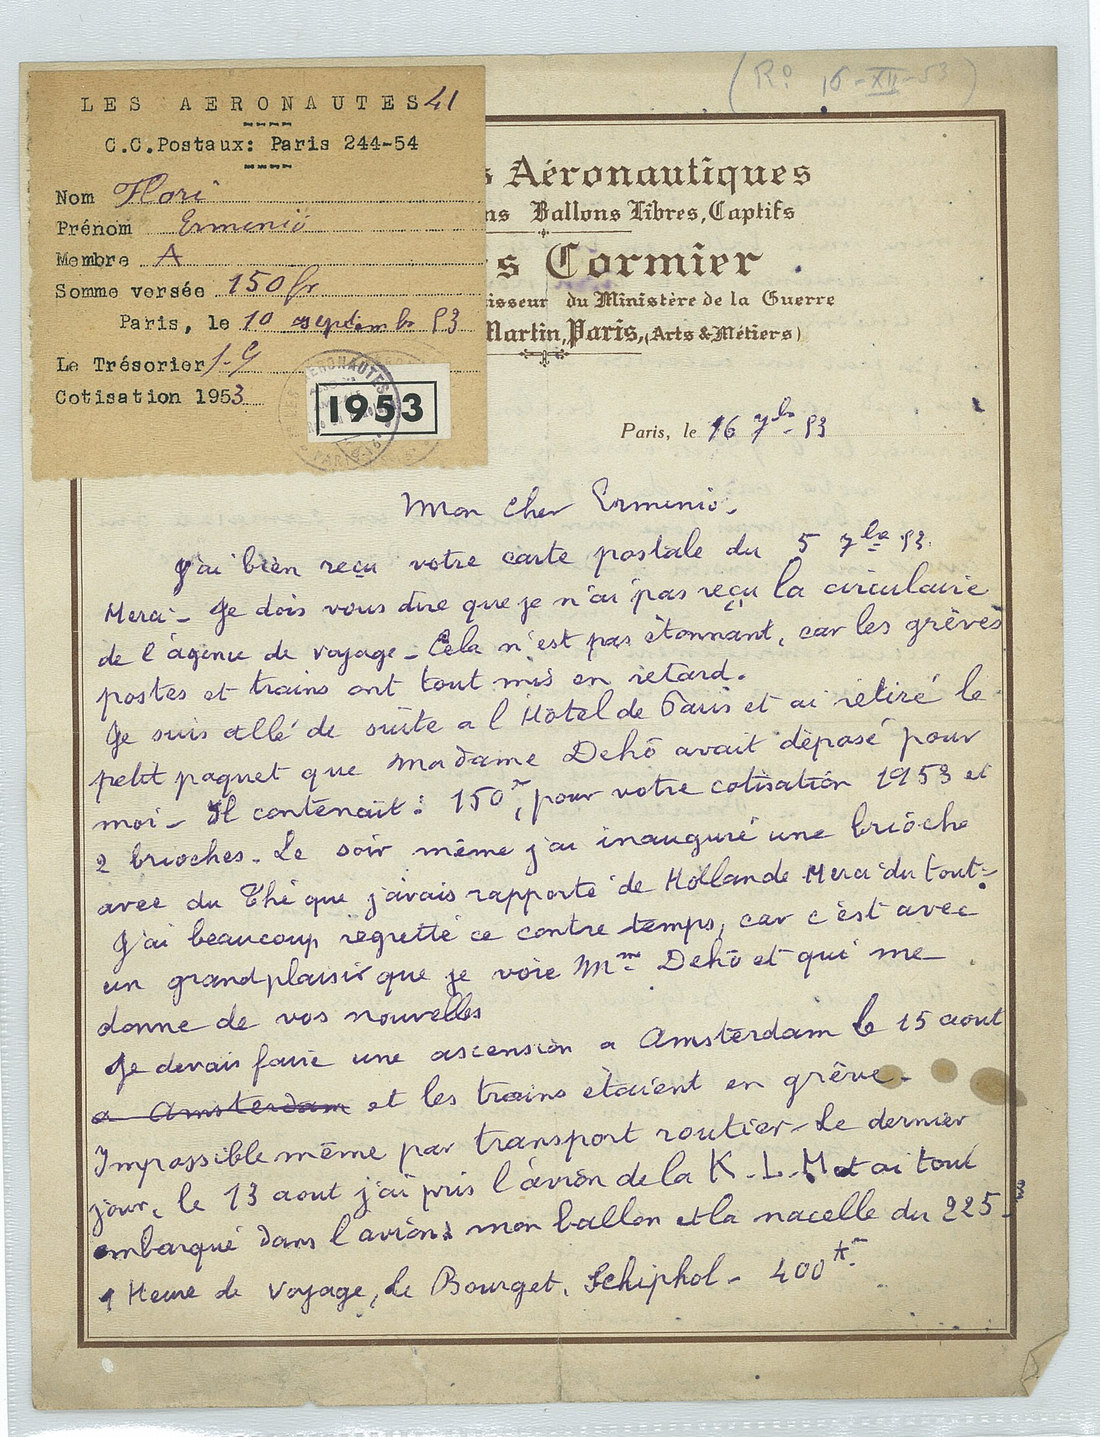 (Rº 16-XII-53)
LES AERONAUTES 41
C.C.Postaux: Paris 244-54
Nom Flori
Prénom Erminio
Membre A
Somme versée 150 fr
Paris, le 10 septembre 53
Le Trésorier J-G
Cotisation 1953
1953
s Aéronautiques
ns Ballons Libres, Captifs
s Cormier
isseur du Ministère de la Guerre
Martin, Paris, (Arts & Métiers)
Paris, le 16 7bre 53
Mon cher Erminio-
J'ai bien reçu votre carte postale du 5 7bre 53.
Merci- Je dois vous dire que je n'ai pas reçu la circulaire
de l'agence de voyage- Cela n'est pas étonnant, car les grèves
postes et trains ont tout mis en retard.
Je suis allé de suite a l Hotel de Paris et ai retiré le
petit paquet que Madame Dehö avait déposé pour
moi- Il contenait: 150 fr, pour votre cotisation 1953 et
2 brioches. Le soir même j'ai inauguré une brioche
avec du Thé que j'avais rapporté de Hollande Merci du tout-
J'ai beaucoup regretté ce contre temps, car c'est avec
un grand plaisir que je voie Mme Dehö et qui me
donne de vos nouvelles
Je devais faire une ascension a Amsterdam le 15 aout
a Amsterdam et les trains étaient en grêve-
Impossible même par transport routier- Le dernier
jour, le 13 aout j'ai pris l'avion de la K.L.M et ai tout
embarqué dans l'avion: mon ballon et la nacelle du 225 3
1 Heure de voyage, Le Bourget. Schiphol- 400 K